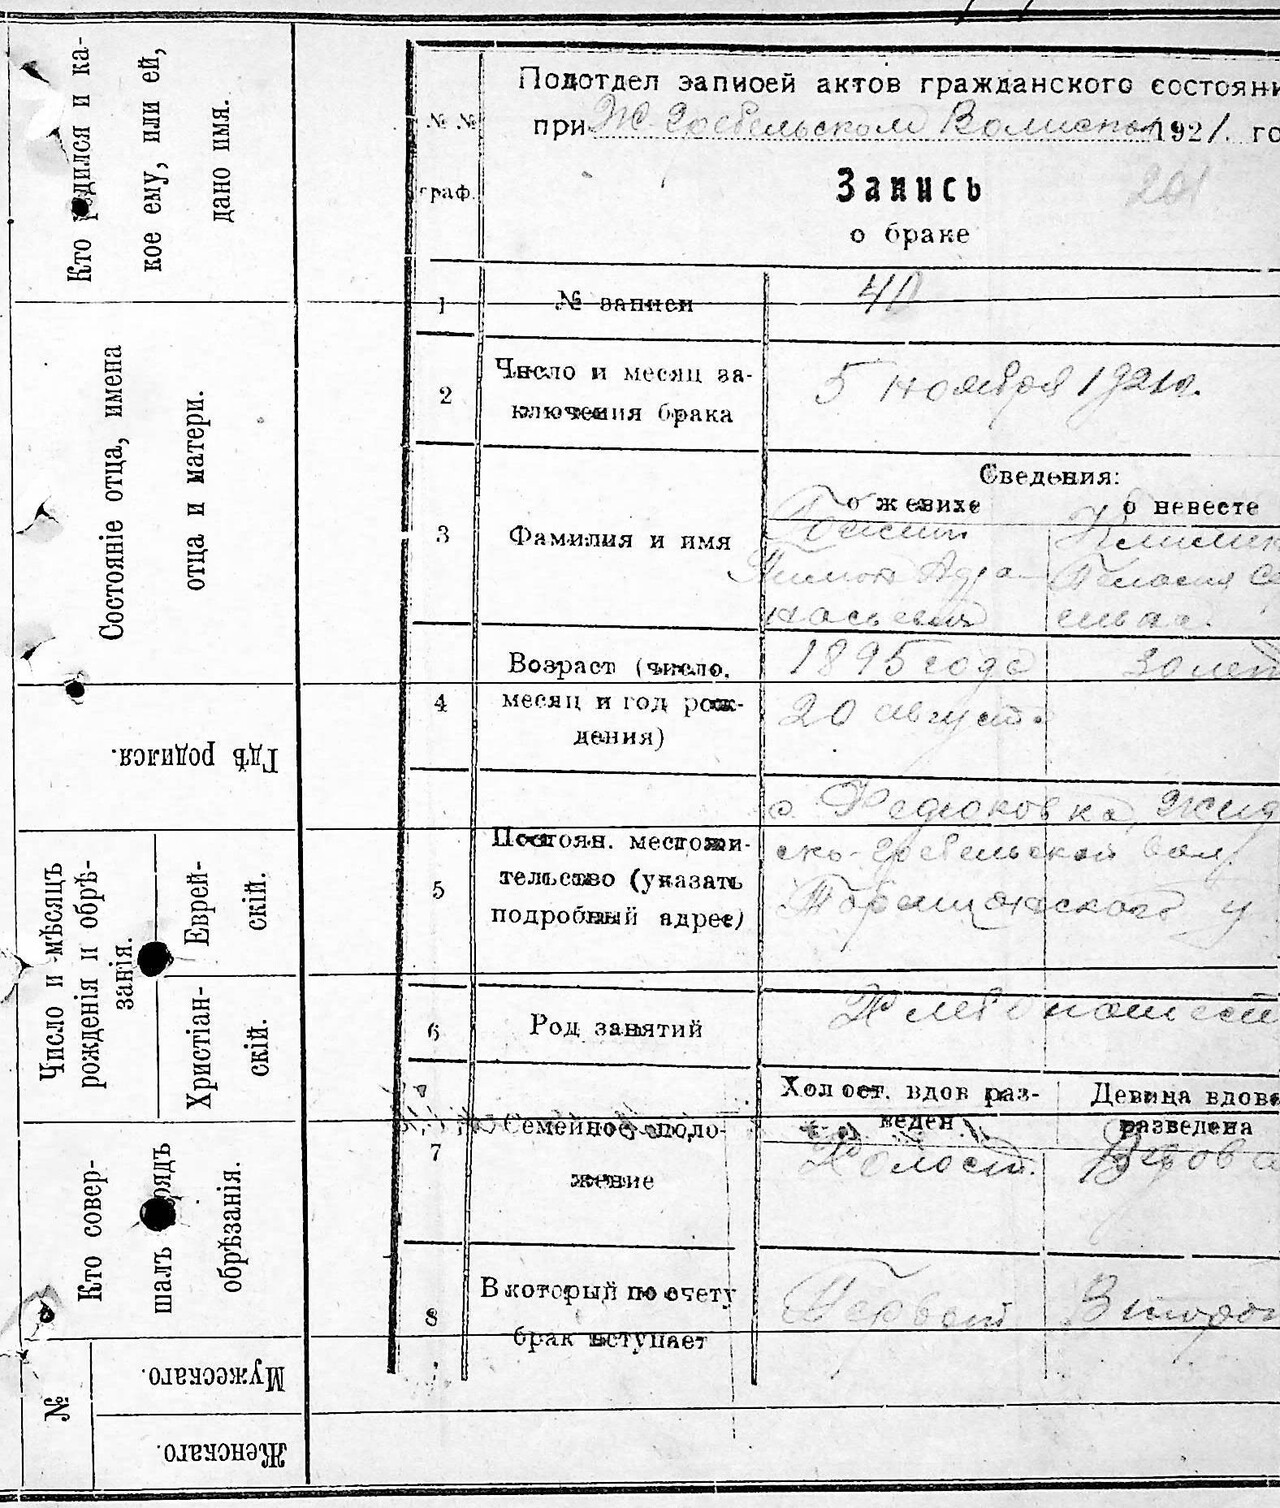 Кто родился и ка-
кое ему, или ей,
дано имя.
Состояніе отца, имена
отца и матери.
Гдѣ родился.
Число и мѣсяцъ
рожденія и обрѣ-
занія.
Еврей-
скій.
Христіан-
скій.
Кто совер-
шалъ обрядъ
обрѣзанія.
№
Мужескаго.
Женскаго.
Подотдел записей актов гражданского состояни
при Ж Гребельском 1921. го
№ №
граф.
Запись
201
о браке
1
№ записи
40
2
Число и месяц за-
ключения брака
5 ноября 1921г.
Сведения:
о женихе
о невесте
3
Фамилия и имя
4
Возраст (число,
месяц и год рож-
дения)
1895 года
30 лет
20 август.
5
Постоян. местожи-
тельство (указать
подробный адрес)
с. Федюковка, Жид
ско-Гребельской вол.
Таращанского у
6
Род занятий
Хлебопашест
7
Семейное поло-
жение
Холост. вдов раз-
веден.
Девица вдова
разведена
Холост.
Вдова
8
В который по счету
брак вступает
Первый
Второй